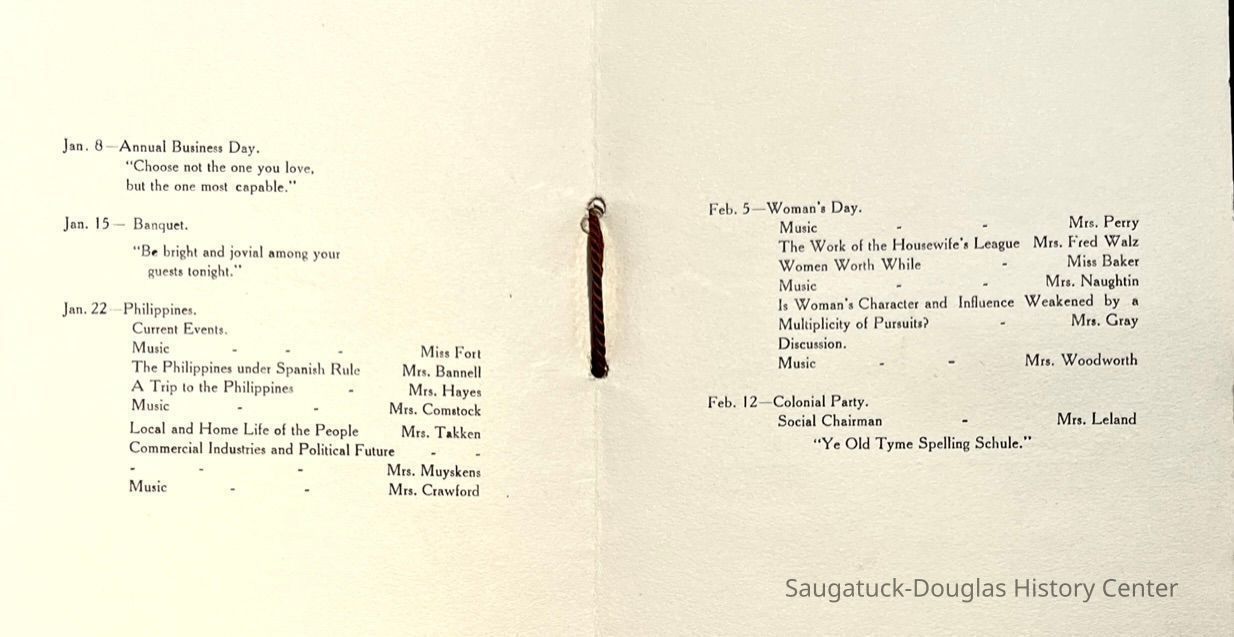 Jan. 8—Annual Business Day.
"Choose not the one you love,
but the one most capable."
Jan. 15— Banquet.
"Be bright and jovial among your
guests tonight."
Jan. 22—Philippines.
Current Events.
Music - - - Miss Fort
The Philippines under Spanish Rule Mrs. Bannell
A Trip to the Philippines - Mrs. Hayes
Music - - Mrs. Comstock
Local and Home Life of the People Mrs. Takken
Commercial Industries and Political Future - -
- - - Mrs. Muyskens
Music - - Mrs. Crawford
Feb. 5—Woman's Day.
Music - - Mrs. Perry
The Work of the Housewife's League Mrs. Fred Walz
Women Worth While - Miss Baker
Music - - Mrs. Naughtin
Is Woman's Character and Influence Weakened by a
Multiplicity of Pursuits? - Mrs. Gray
Discussion.
Music - - Mrs. Woodworth
Feb. 12—Colonial Party.
Social Chairman - Mrs. Leland
"Ye Old Tyme Spelling Schule."
Saugatuck-Douglas History Center